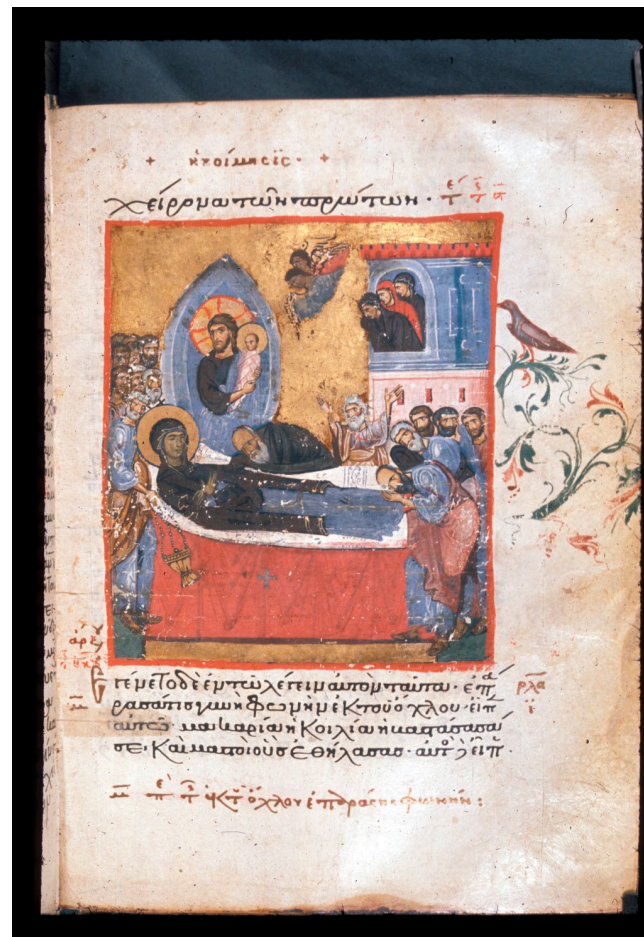 + ἡ κοίμησις · +
χείρονα τῶν πρώτων ·
ἀρχ
Ἐγένετο δὲ ἐν τῶ λέγειν αὐτὸν ταῦτα · ἐπά
ρασά τις γυνὴ φωνὴν ἐκ τοῦ ὄχλου · εἶπ
αὐτῶ · μακαρία ἡ κοιλία ἡ βαστάσασά
σε · καὶ μαστοὶ οὓς ἐθήλασας · αὐτὸ εἶπ ·
ρλα
ϊ
ὄχλου ἐπάρασα φωνήν :